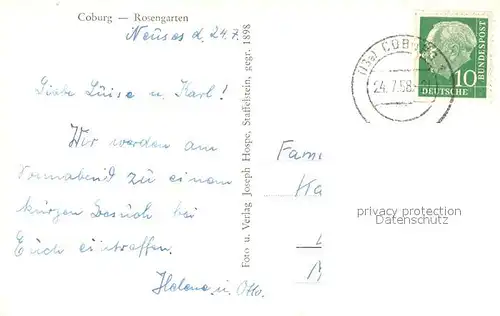 Coburg — Rosengarten
Neuses d. 24.7.
Liebe Luise u. Karl!
Wir werden am
Sonnabend zu einem
kurzen Besuch bei
Euch eintreffen.
Helene u. Otto.
Foto u. Verlag Joseph Hospe, Staffelstein, gegr. 1898
(13a) COBURG
24.7.58
10
DEUTSCHE
BUNDESPOST
Fam
Ka
privacy protection
Datenschutz